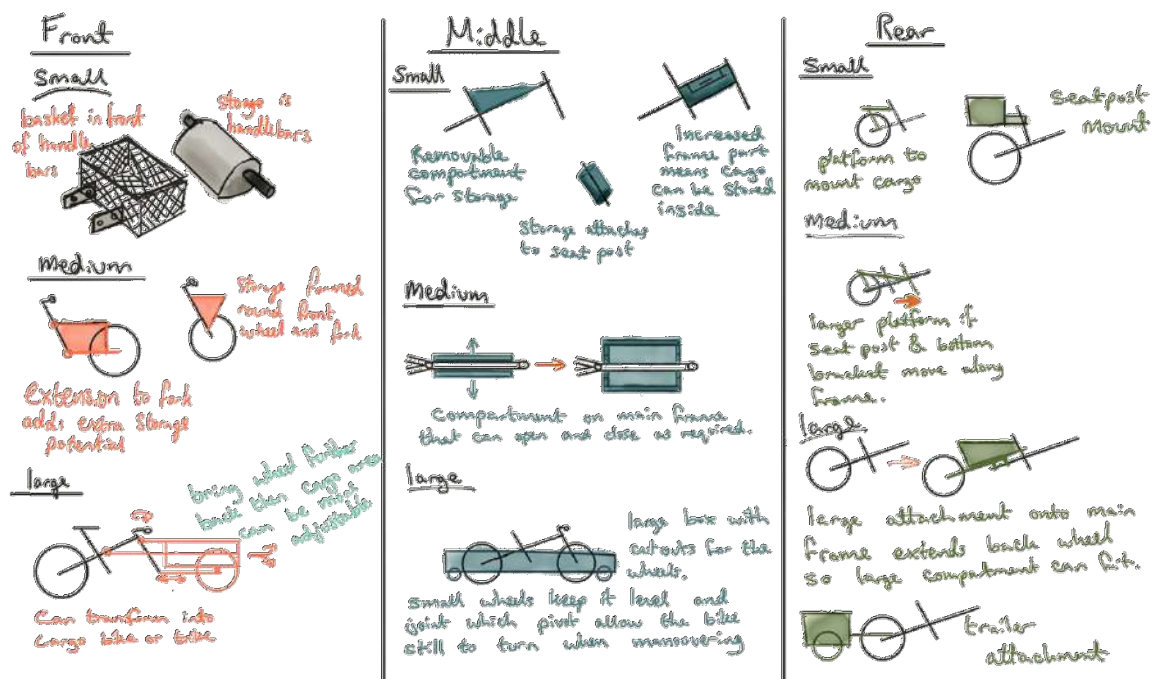 Front
Small
basket in front
of handle
bars
Storage is
handlebars
Medium
Storage formed
round front
wheel and fork
Extension to fork
adds extra storage
potential
large
bring wheel further
back then cargo area
can be more
adjustable
Can transform into
cargo bike or trike
Middle
Small
Removable
compartment
for storage
Increased
frame part
means cargo
can be stored
inside
Storage attaches
to seat post
Medium
Compartment on main frame
that can open and close as required.
large
large box with
cutouts for the
wheels.
Small wheels keep it level and
joint which pivot allow the bike
still to turn when manovering
Rear
Small
platform to
mount cargo
Seatpost
mount
Medium
larger platform if
seat post & bottom
bracket move along
frame.
large
large attachment onto main
frame extends back wheel
so large compartment can fit.
trailer
attachment